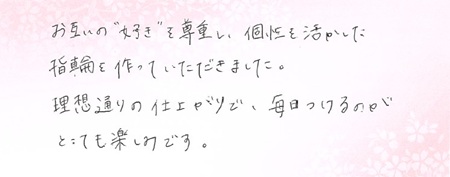 お互いの"好き"を尊重し、個性を活かした
指輪を作っていただきました。
理想通りの仕上がりで、毎日つけるのが
とても楽しみです。